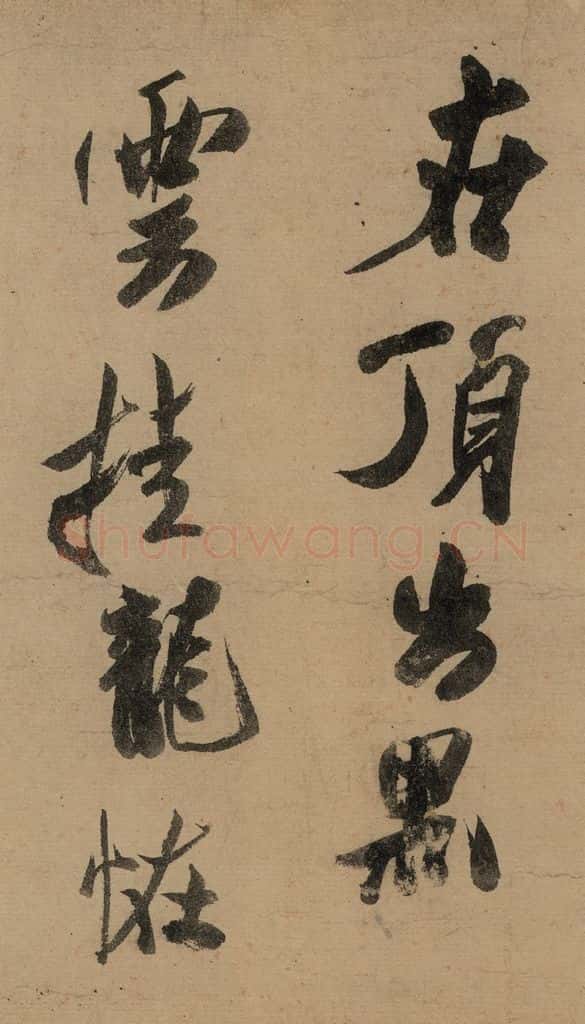 在頂出黑
雲挂龍恠
Shufawang.CN